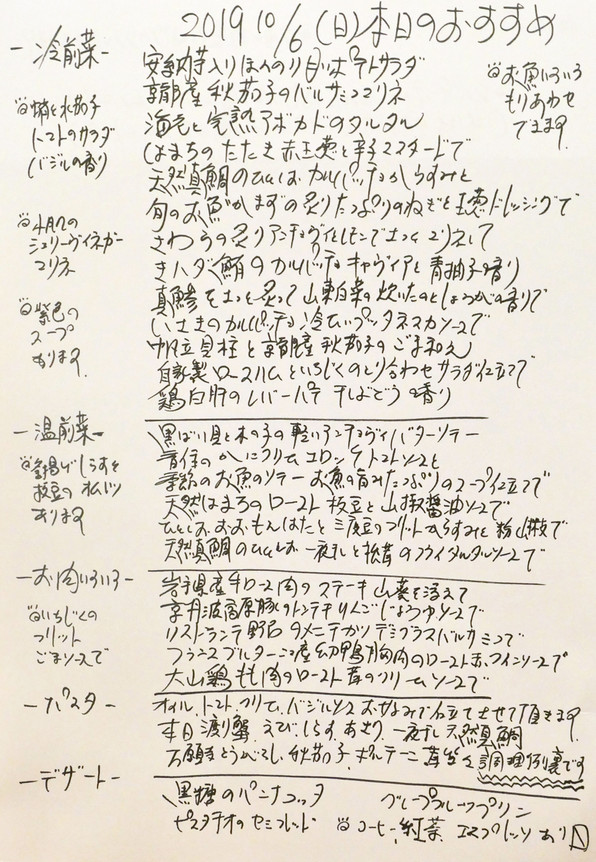 2019 10/6 (日) 本日のおすすめ
- 冷前菜 -
安納芋入りほんのり甘いポテトサラダ
京都産 秋茄子のバルサミコマリネ
海老と完熟アボカドのタルタル
はまちのたたき 赤玉葱と辛子マスタードで
天然真鯛のひとしお カルパッチョ からすみと
旬のお魚 かます の炙り たっぷりのねぎと玉葱ドレッシングで
さわらの炙り アンチョヴィとレモンで マリネして
きハダ鮪のカルパッチョ キャヴィアと青柚子の香り
真鯵を 炙って 山東白菜の炊いたのと しょうがの香りで
いさきのカルパッチョ 冷たいプッタネスカソースで
帆立貝柱と京都産 秋茄子のごま和え
自家製ロースハムといちじくのとり合わせ サラダ仕立てで
鶏白肝のレバーパテ 干しぶどうの香り
お魚いろいろ
もりあわせ
できます
蛸と水茄子
トマトのサラダ
(バジルの香り)
シェリーヴィネガー
マリネ
紫色の
スープ
あります
- 温前菜 -
黒ばい貝と木の子の軽いアンチョヴィバターソテー
かにクリームコロッケ トマトソースと
季節のお魚のソテー お魚の旨みたっぷりのスープ仕立てで
天然はまちのロースト 枝豆と山椒醤油ソースで
ひとしお おおもんはたと三度豆のフリット からすみと粉山椒で
天然真鯛のひとしお 一夜干しと松茸のフライ タルタルソースで
釜揚げしらすと
枝豆の オムレツ
あります
- お肉いろいろ -
岩手県産牛ロース肉のステーキ 山葵を添えて
京丹波高原豚のトンテキ りんごじょうゆソースで
リストランテ野呂のメンチカツ デミグラスバルサミコで
フランス ブルターニュ産 幼鴨胸肉のロースト 赤ワインソースで
大山鶏もも肉のロースト 茸のクリームソースで
いちじくの
フリット
ごまソースで
- パスタ -
オイル、トマト、クリーム、バジルソース お好みで仕立てさせて頂きます
本日 渡り蟹、えび、しらす、あさり、一夜干し天然真鯛
万願寺とうがらし、秋茄子、ポルチーニ 茸 など 調理例裏です
- デザート -
黒糖のパンナコッタ
グレープフルーツプリン
ピスタチオのセミフレッド
コーヒー、紅茶 エスプレッソ あり